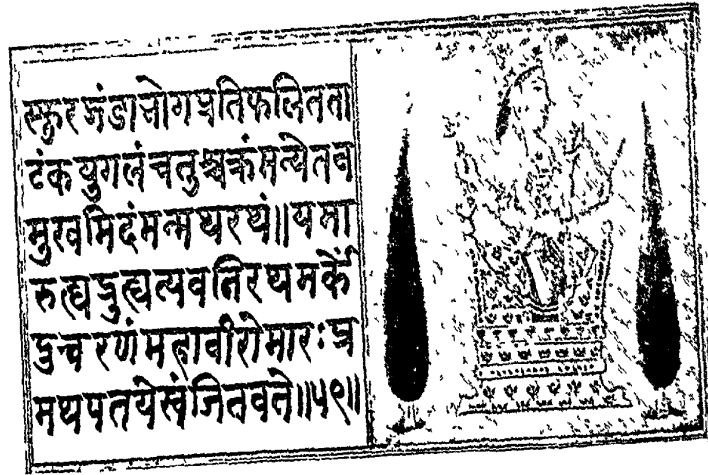 स्फुरद्गंडाभोगप्रतिफलितता
टंकयुगलंचतुश्चक्रंमन्येतव
मुखमिदंमन्मथरथं॥यमा
रुह्यद्रुह्यत्यवनिरथमर्कें
दुचरणंमहावीरोमारःप्र
मथपतयेस्वंजितवते॥५९॥